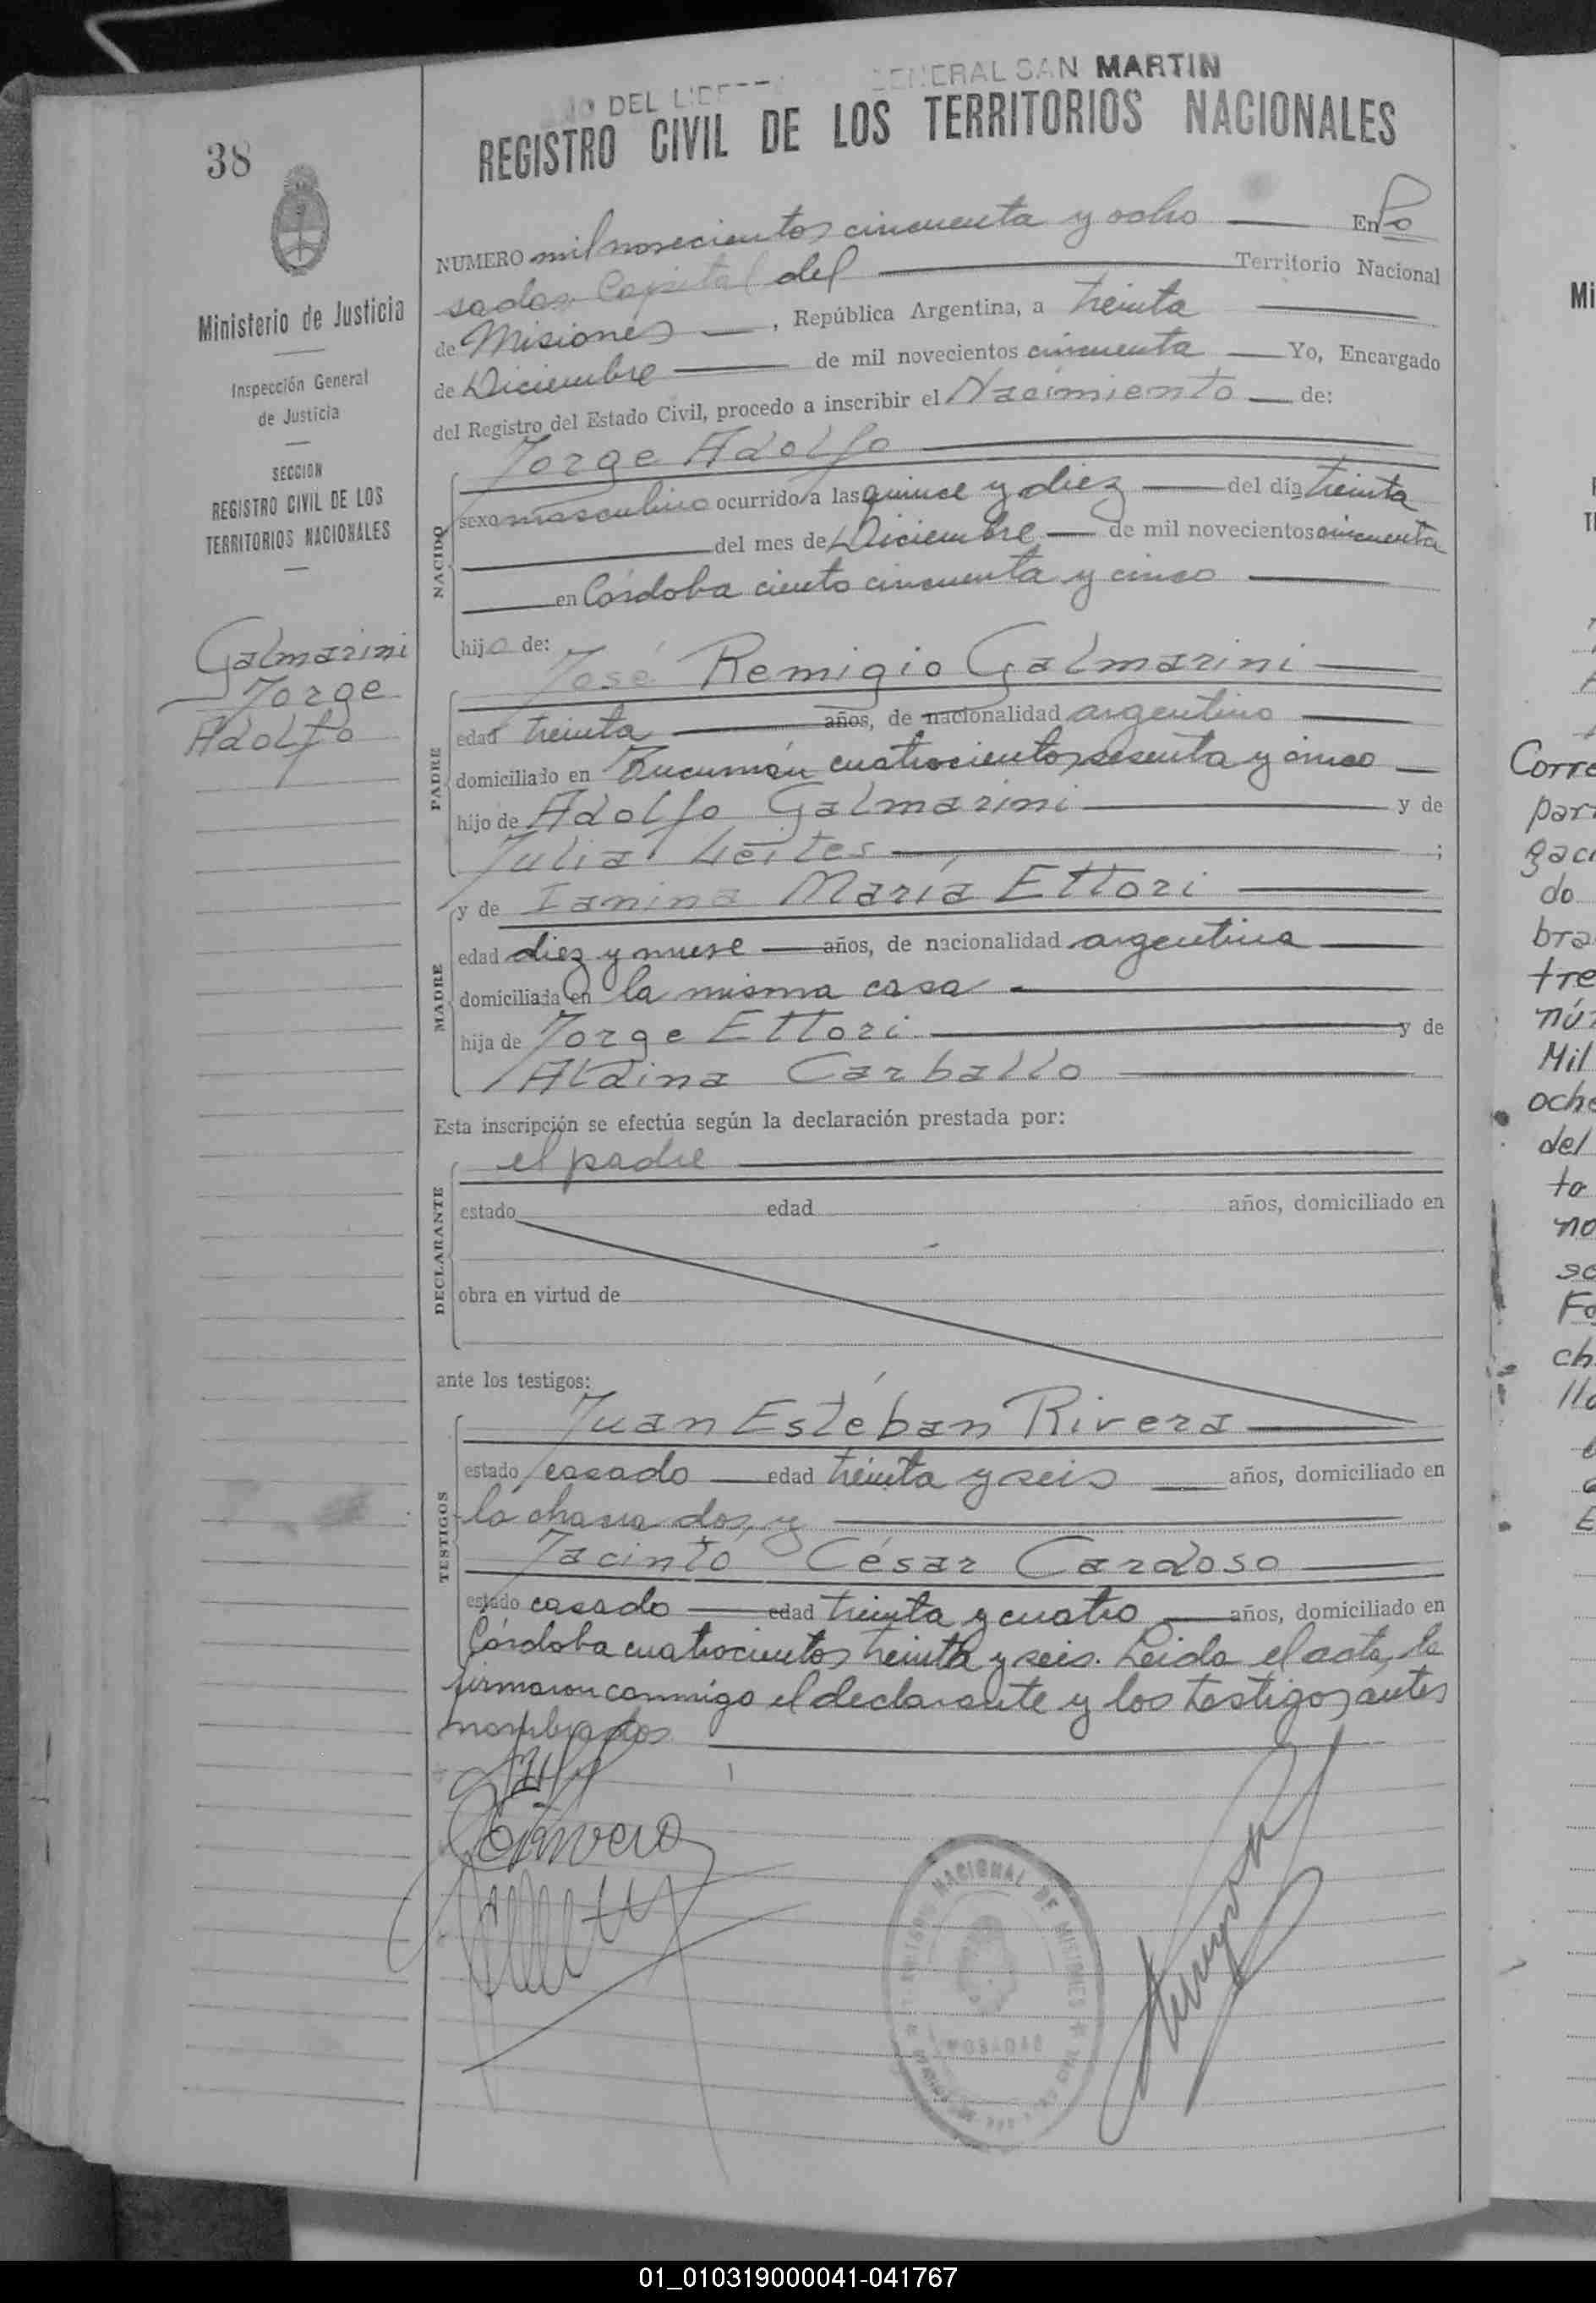 GENERAL SAN MARTIN
REGISTRO CIVIL DE LOS TERRITORIOS NACIONALES
38
Ministerio de Justicia
Inspección General
de Justicia
SECCION
REGISTRO CIVIL DE LOS
TERRITORIOS NACIONALES
Galmarini
Jorge
Adolfo
NUMERO mil novecientos cincuenta y ocho En Po
sadas Capital del Territorio Nacional
de Misiones, República Argentina, a treinta
de Diciembre de mil novecientos cincuenta Yo, Encargado
del Registro del Estado Civil, procedo a inscribir el Nacimiento de:
NACIDO
Jorge Adolfo
sexo masculino ocurrido a las quince y diez del día treinta
del mes de Diciembre de mil novecientos cincuenta
en Córdoba ciento cincuenta y cinco
hijo de:
PADRE
José Remigio Galmarini
edad treinta años, de nacionalidad argentino
domiciliado en Tucumán cuatrocientos sesenta y cinco
hijo de Adolfo Galmarini y de
Julia Leites ;
MADRE
y de Ianina María Ettori
edad diez y nueve años, de nacionalidad argentina
domiciliada en la misma casa
hija de Jorge Ettori y de
Aldina Carballo
Esta inscripción se efectúa según la declaración prestada por:
DECLARANTE
el padre
estado edad años, domiciliado en
obra en virtud de
ante los testigos:
TESTIGOS
Juan Esteban Rivera
estado casado edad treinta y seis años, domiciliado en
la chacra dos, y
Jacinto César Cardoso
estado casado edad treinta y cuatro años, domiciliado en
Córdoba cuatrocientos treinta y seis. Leida el acta, la
firmaron conmigo el declarante y los testigos antes
nombrados
NACIONAL DE MISIONES
POSADAS
Mi
Corre
par
gaci
do
bra
tre
nú
Mil
oche
del
to
no
se
Fo
ch
lla
01_010319000041-041767